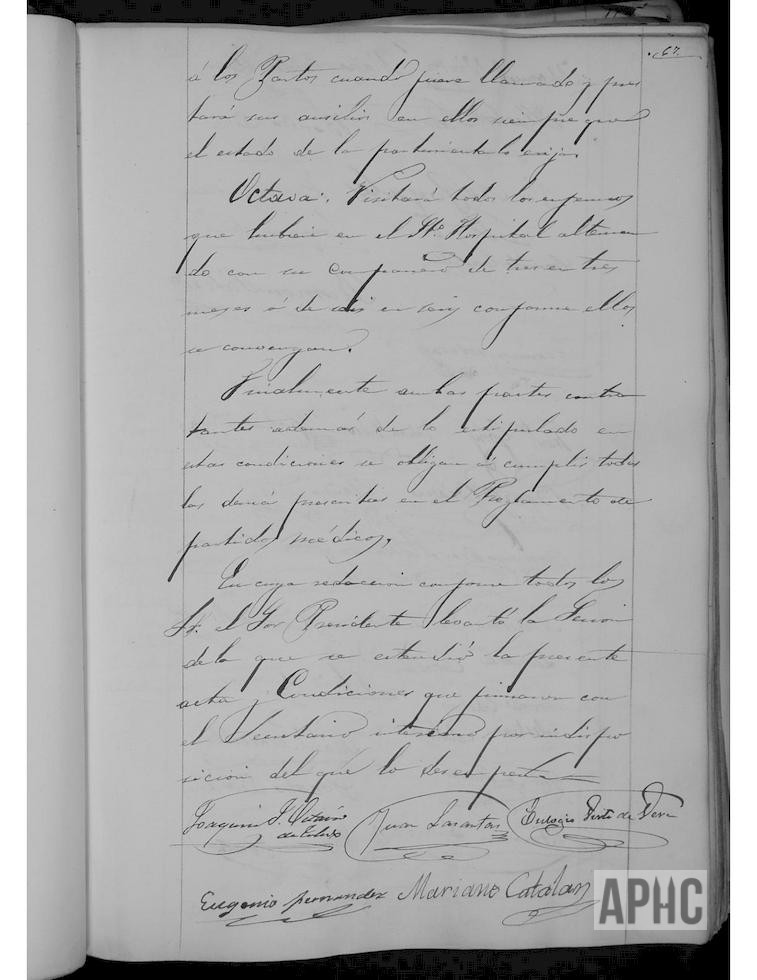 67.
á los Partos cuando fuere llamado y pres
tará sus ausilios en ellos siempre que
el estado de la parturienta lo exija.
Octava. Visitará todos los enfermos
que hubiere en el Sto. Hospital alternan
do con su compañero de tres en tres
meses ó de seis en seis conforme ellos
se convengan.
Finalmente ambas partes contra
tantes ademas de lo estipulado en
estas condiciones se obligan á cumplir todas
las demás prescritas en el Reglamento de
partidos médicos.
En cuya redaccion conforme todos los
S.S. el Sor Presidente levantó la Sesion
de la que se estendió la presente
acta y Condiciones que firmaron con
el Secretario interino por indispo
sicion del que lo desempeña
Joaquin
Juan Lasantas
Eulogio
Eugenio Fernandez Mariano Catalan
APHC